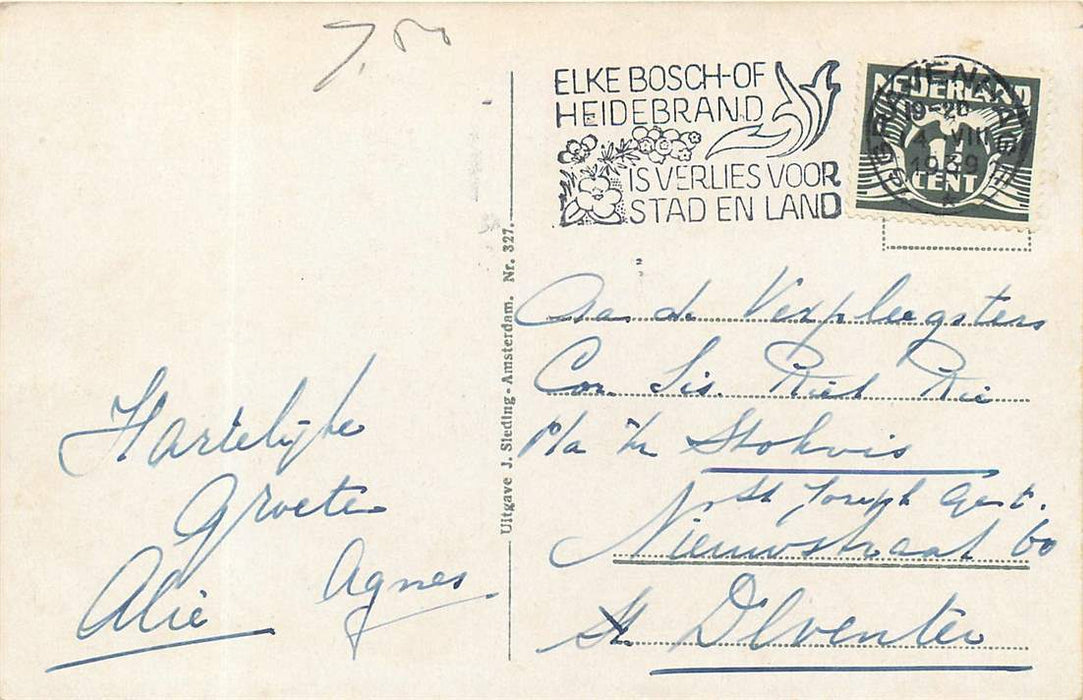 7.50
ELKE BOSCH- OF
HEIDEBRAND
IS VERLIES VOOR
STAD EN LAND
NEDERLAND
1
CENT
'S GRAVENHAGE
19-20
4 VIII
1939
Uitgave J. Sleding - Amsterdam. Nr. 327.
Aa. de Verpleegsters
Cor. Sis. Riet Rie
p/a Stokvis
St Joseph Gest.
Nieuwstraat 60
Deventer
Hartelijke
Groeten
Alie Agnes